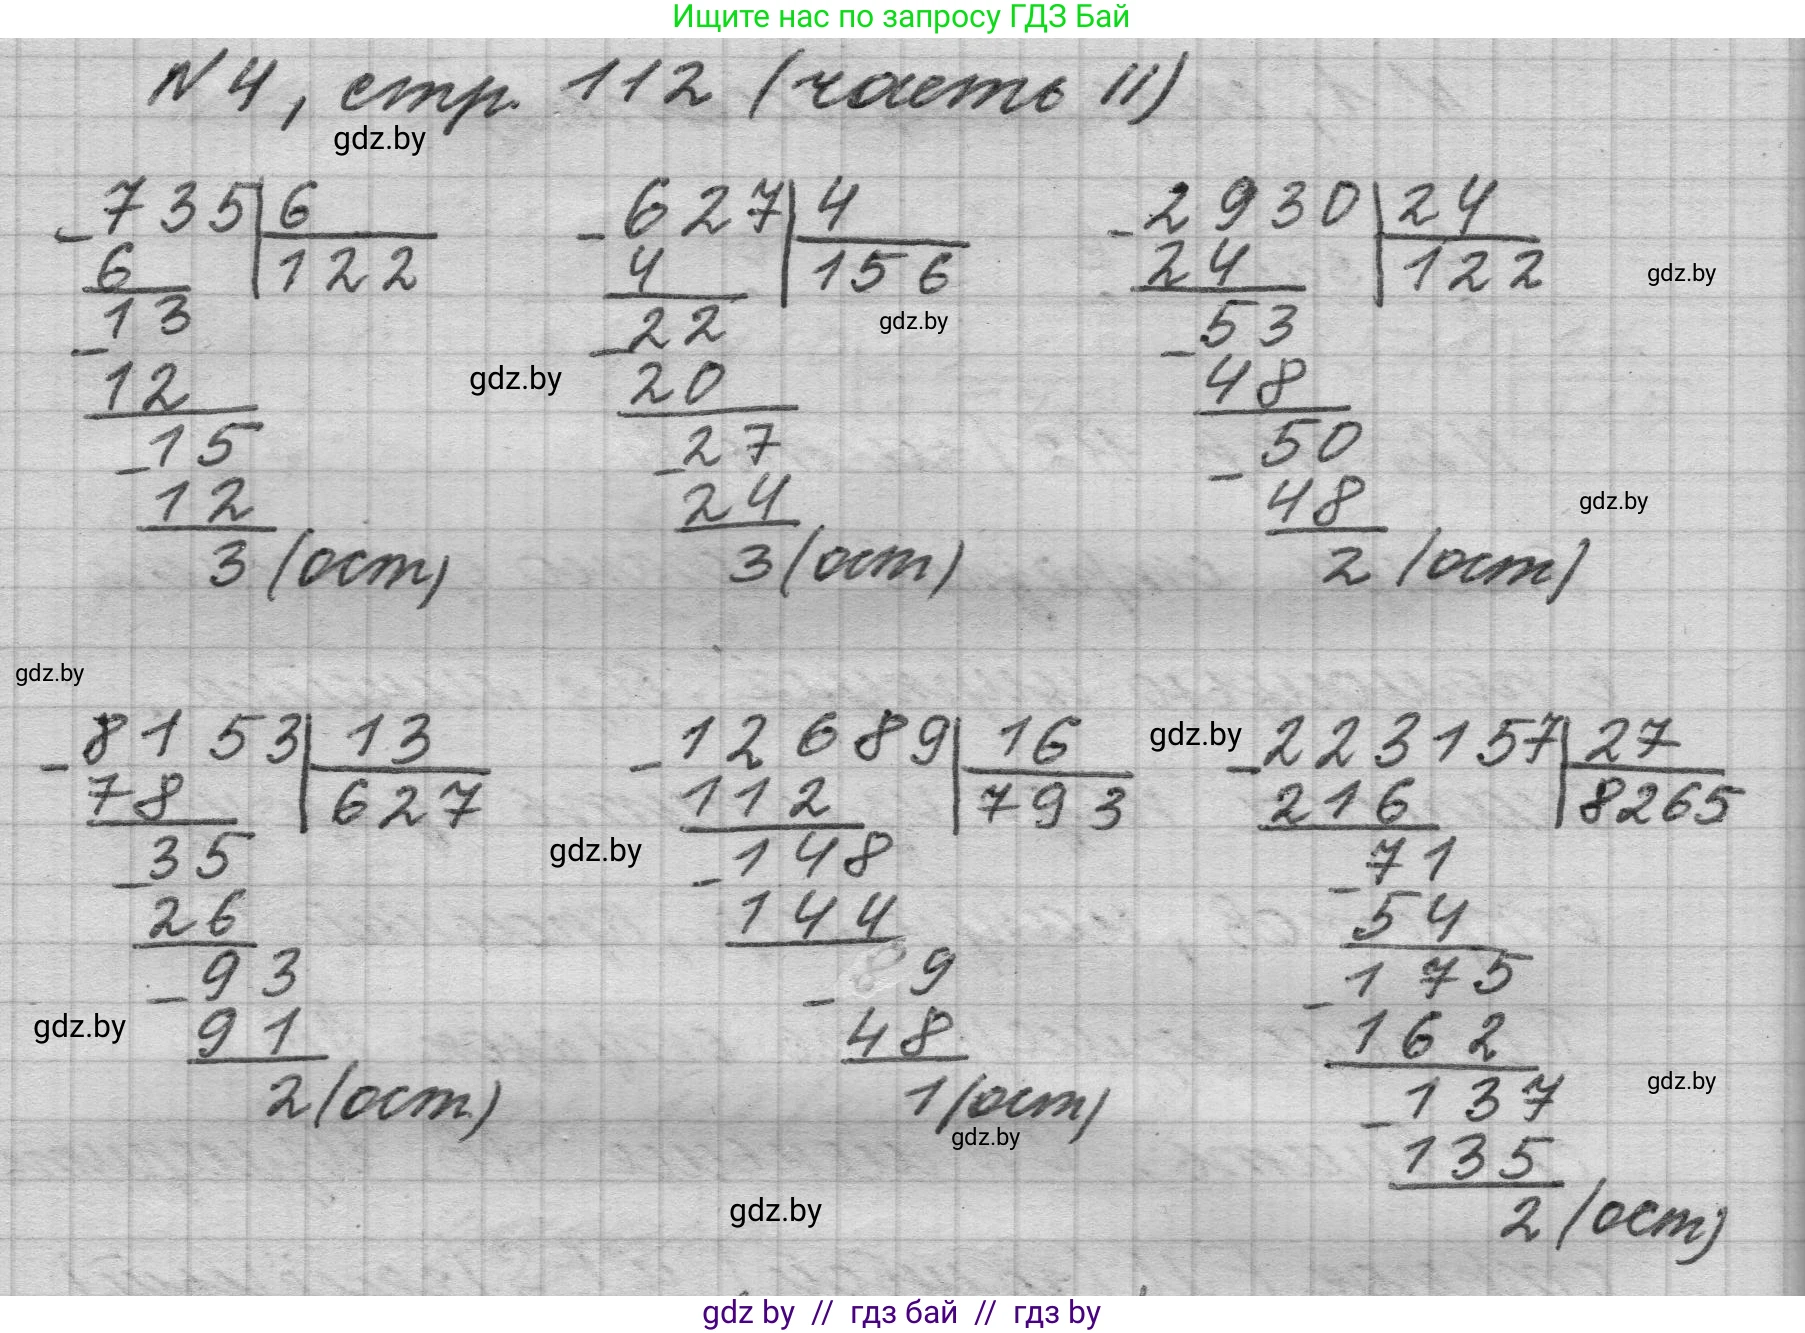 Ищите нас по запросу ГДЗ Бай
N 4, стр. 112 (часть II)
gdz.by
- 735 | 6
6 | 122
- 13
12
- 15
12
3 (ост)
- 627 | 4
4 | 156
gdz.by
- 22
gdz.by
20
- 27
24
3 (ост)
- 2930 | 24
24 | 122
gdz.by
- 53
48
- 50
48
gdz.by
2 (ост)
gdz.by
- 8153 | 13
78 | 627
- 35
26
- 93
gdz.by
91
2 (ост)
- 12689 | 16
112 | 793
gdz.by
- 148
144
- 89
48
1 (ост)
gdz.by
gdz.by
- 223157 | 27
216 | 8265
- 71
54
- 175
162
- 137
gdz.by
135
2 (ост)
gdz.by
gdz by // гдз бай // гдз by